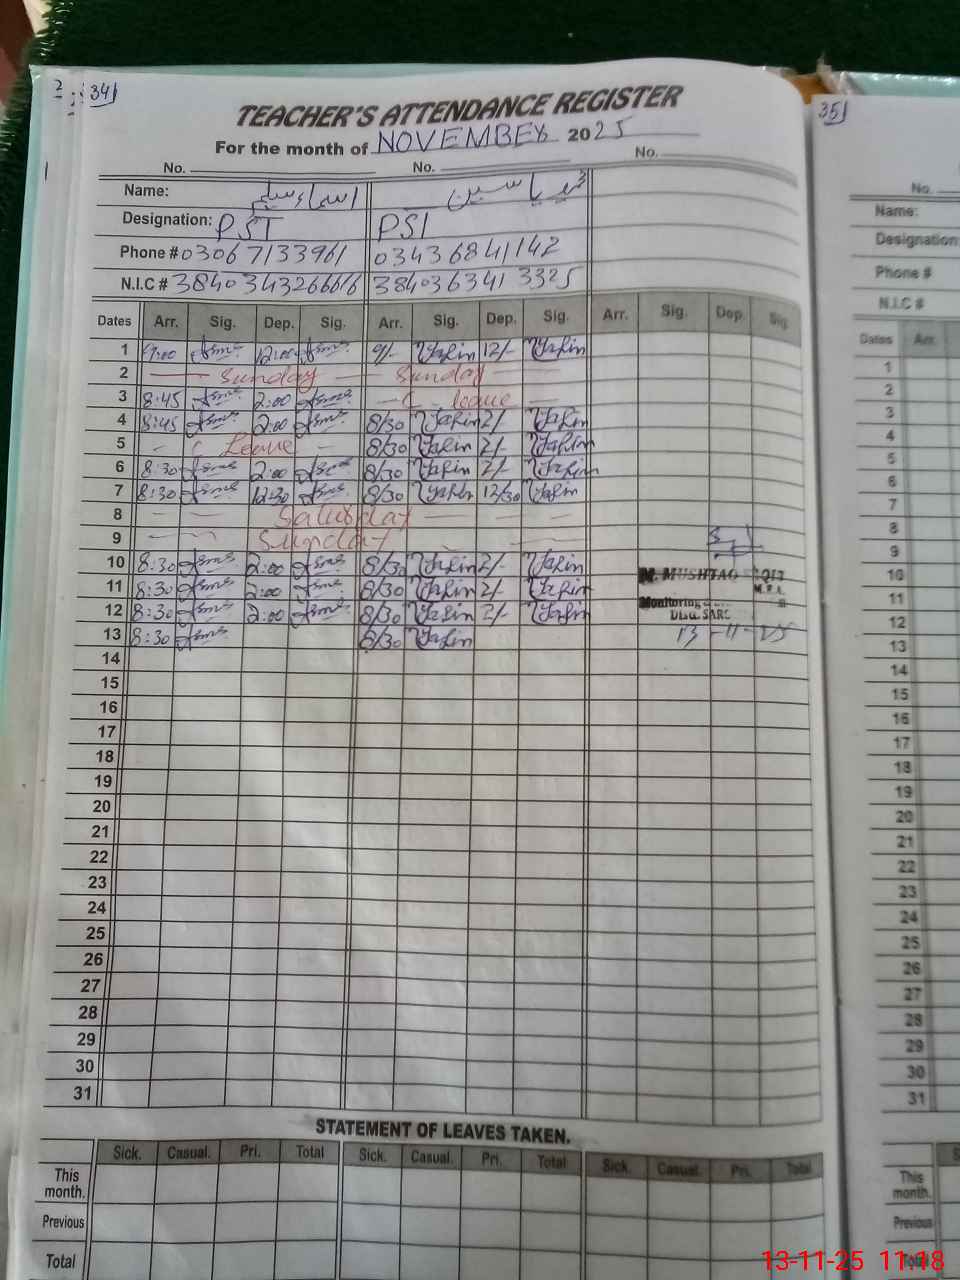 34
TEACHER'S ATTENDANCE REGISTER
For the month of NOVEMBER 2025
No. No. No.
Name: اسماء سلیم یاسین
Designation: PST PST
Phone # 03067133961 03436841142
N.I.C # 3840343266616 3840363413325
Dates Arr. Sig. Dep. Sig. Arr. Sig. Dep. Sig. Arr. Sig. Dep. Sig
1 9:00 Asma 12:00 Asma 9/- Yasin 12/- Yasin
2 Sunday Sunday
3 8:45 Asma 2:00 Asma C - leave
4 8:45 Asma 2:00 Asma 8/30 Yasin 2/- Yasin
5 C Leave 8/30 Yasin 2/- Yasin
6 8:30 Asma 2:00 Asma 8/30 Yasin 2/- Yasin
7 8:30 Asma 12:30 Asma 8/30 Yasin 12/30 Yasin
8 Saturday
9 Sunday
10 8:30 Asma 2:00 Asma 8/30 Yasin 2/- Yasin
11 8:30 Asma 2:00 Asma 8/30 Yasin 2/- Yasin
12 8:30 Asma 2:00 Asma 8/30 Yasin 2/- Yasin
13 8:30 Asma 8/30 Yasin
M. MUSHTAQ
M.E.A.
Monitoring
13-11-25
14
15
16
17
18
19
20
21
22
23
24
25
26
27
28
29
30
31
STATEMENT OF LEAVES TAKEN.
Sick. Casual. Pri. Total Sick. Casual. Pri. Total Sick. Casual. Pri. Total
This month.
Previous
Total
35
No.
Name:
Designation:
Phone #
N.I.C #
Dates Arr.
1
2
3
4
5
6
7
8
9
10
11
12
13
14
15
16
17
18
19
20
21
22
23
24
25
26
27
28
29
30
31
S
This month.
Previous
Total
13-11-25 11:18